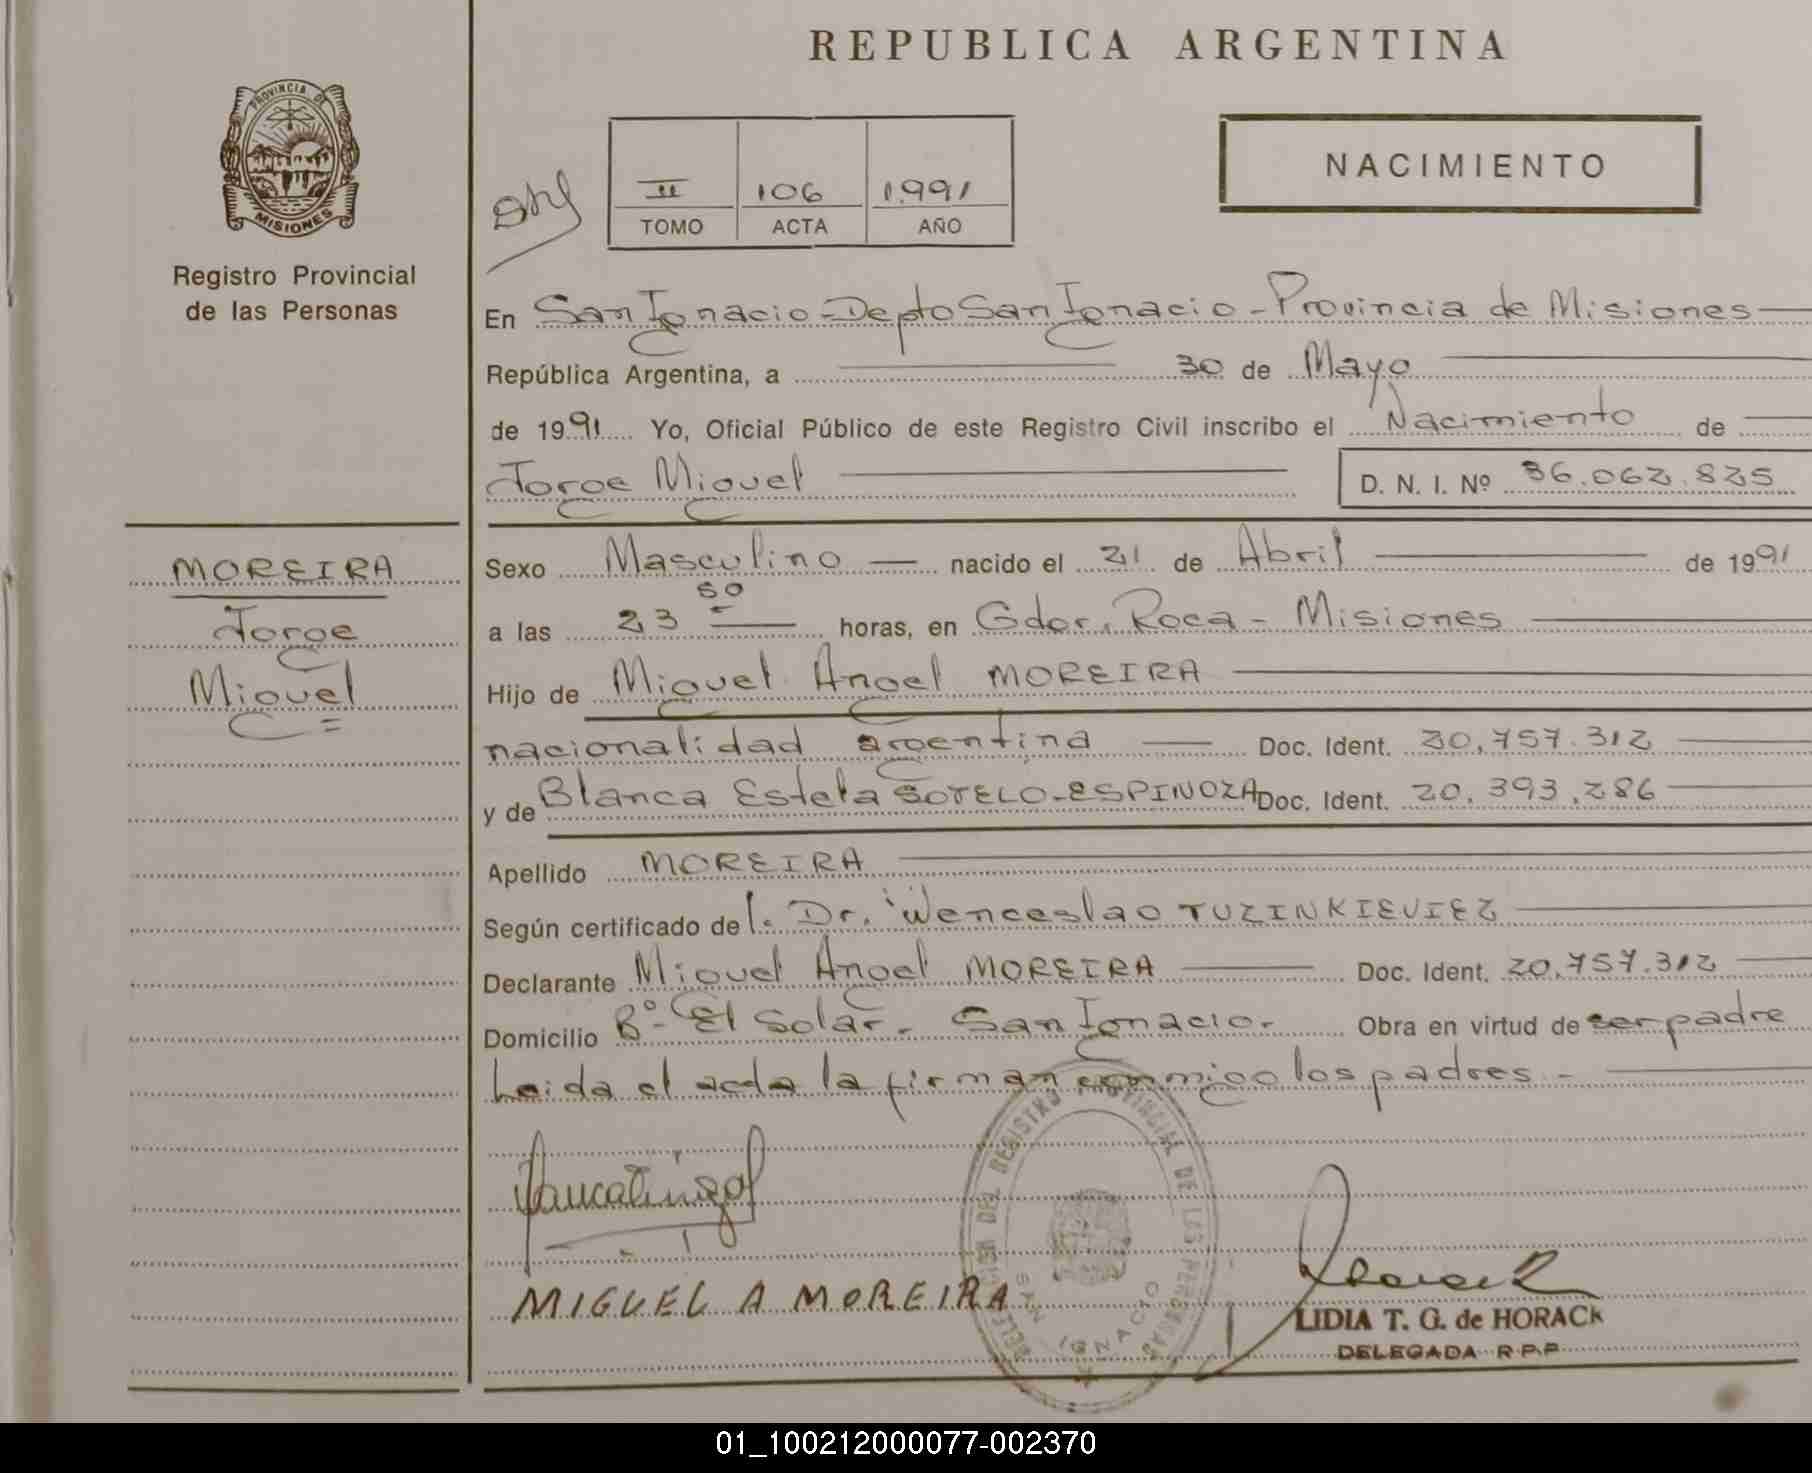 REPUBLICA ARGENTINA
PROVINCIA DE
MISIONES
Registro Provincial
de las Personas
II 106 1.991
TOMO ACTA AÑO
NACIMIENTO
En San Ignacio - Depto San Ignacio - Provincia de Misiones
República Argentina, a 30 de Mayo
de 1991 Yo, Oficial Público de este Registro Civil inscribo el Nacimiento de
Jorge Miguel D. N. I. Nº 36.062.825
MOREIRA
Jorge
Miguel
Sexo Masculino nacido el 21 de Abril de 1991
a las 23 50 horas, en Gdor. Roca - Misiones
Hijo de Miguel Angel MOREIRA
nacionalidad argentina Doc. Ident. 20.757.312
y de Blanca Estela SOTELO-ESPINOZA Doc. Ident. 20.393.286
Apellido MOREIRA
Según certificado de l. Dr. Wenceslao TUZINKIEVIEZ
Declarante Miguel Angel MOREIRA Doc. Ident. 20.757.312
Domicilio Bº- El Solar. San Ignacio. Obra en virtud de ser padre
Leida el acta la firman conmigo los padres.-
MIGUEL A MOREIRA
DELEGACION DEL REGISTRO PROVINCIAL DE LAS PERSONAS
SAN IGNACIO
LIDIA T. G. de HORACK
DELEGADA R.P.P.
01_100212000077-002370